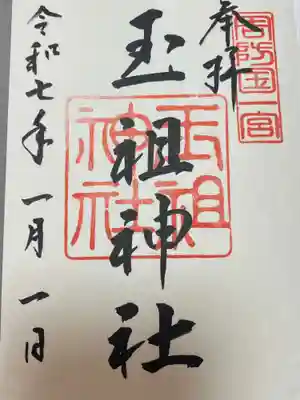 周防国一宮
奉拝
玉祖神社
玉祖神社
令和七年一月一日